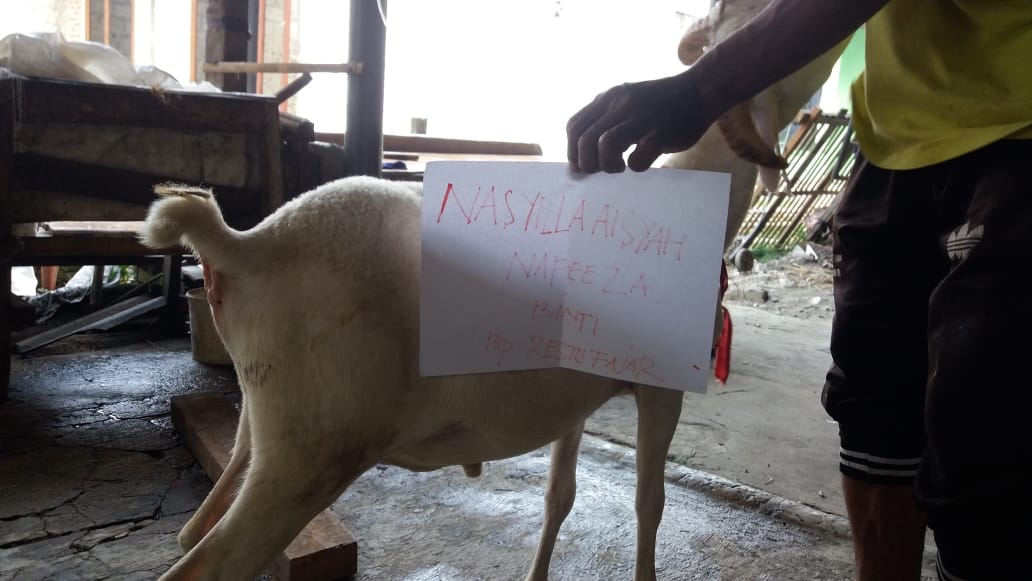 NASYILLA AISYAH
NAFEEZA
BINTI
Bp. RESTU FAJAR